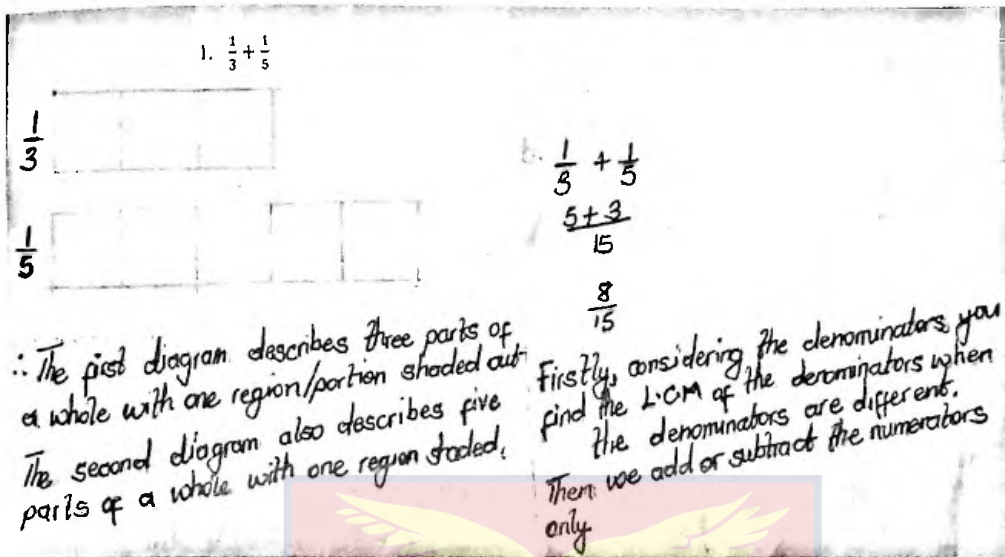 1. 1/3 + 1/5
1/3
1/5
∴ The first diagram describes three parts of
a whole with one region/portion shaded out
The second diagram also describes five
parts of a whole with one region shaded.
b. 1/3 + 1/5
5+3
15
8
15
Firstly, considering the denominators, you
find the L.C.M of the denominators when
the denominators are different.
Then we add or subtract the numerators
only